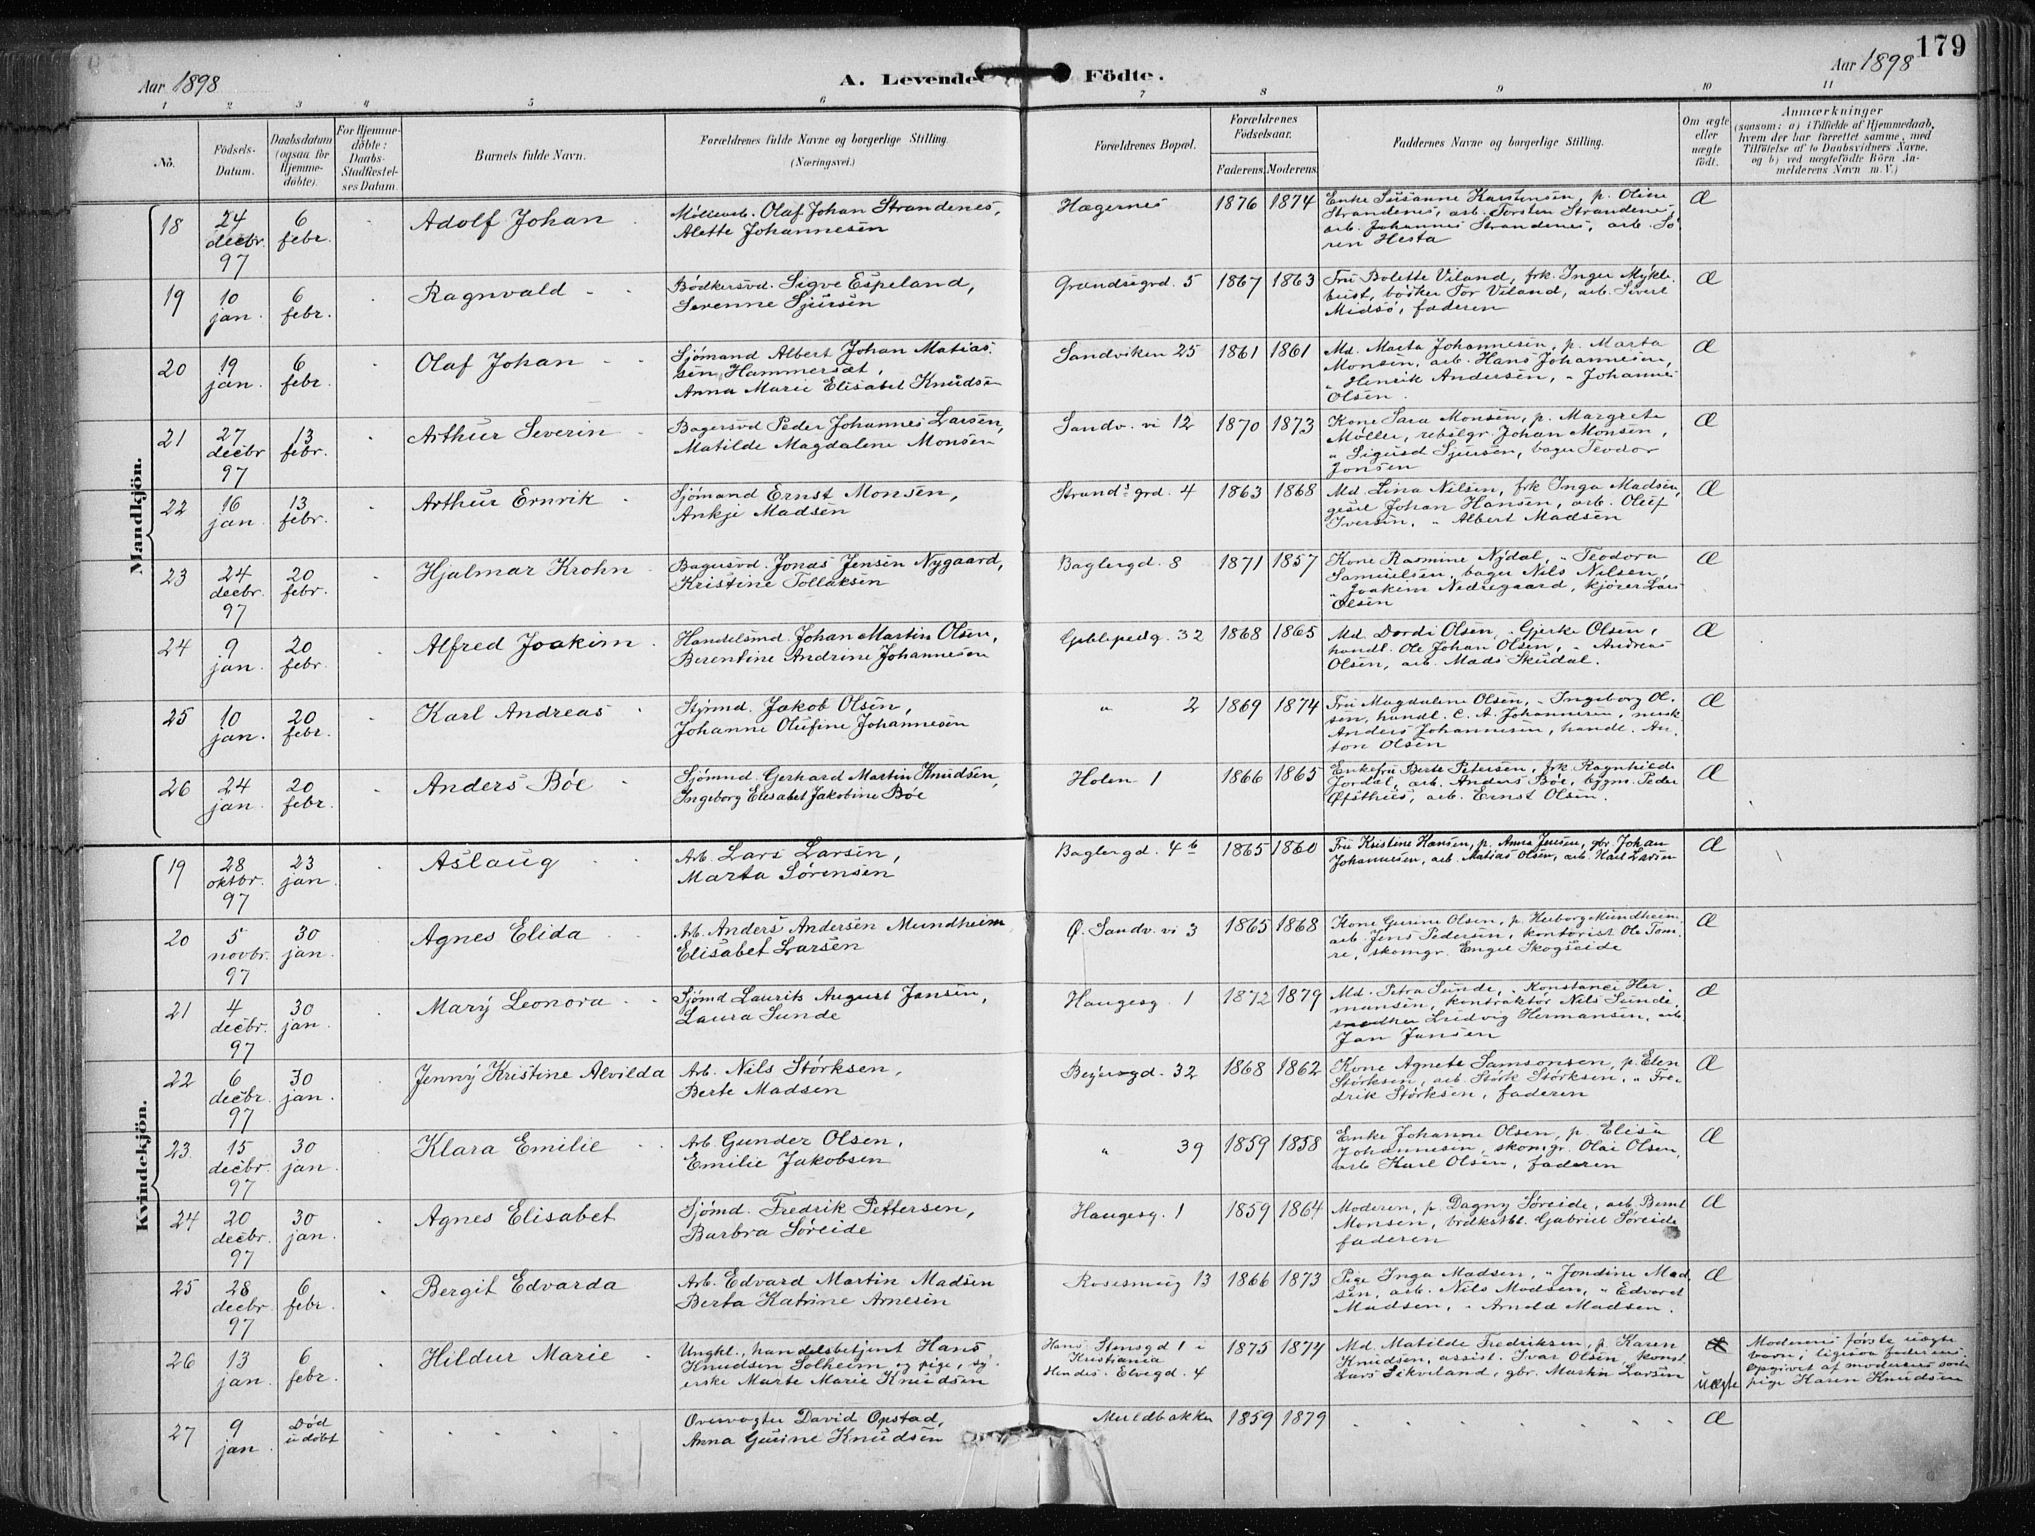 179
Aar 1898
A. Levende Födte.
Aar 1898
1 2 3 4 5 6 7 8 9 10 11
No.
Födsels-Datum.
Daabsdatum (ogsaa for Hjemmedöbte).
For Hjemmedöbte: Daabs-Stadfæstelses Datum.
Barnets fulde Navn.
Forældrenes fulde Navne og borgerlige Stilling.
(Næringsvei.)
Forældrenes Bopæl.
Forældrenes Födselsaar.
Faderens. Moderens.
Faddernes Navne og borgerlige Stilling.
Om ægte eller uægte födt.
Anmærkninger
(saasom: a) i Tilfælde af Hjemmedaab, hvem der har forrettet samme, med Tilföielse af to Daabsvidners Navne, og b) ved uægtefödte Börn Anmelderens Navn m. V.)
Mandkjön.
18 24 decbr. 97 6 febr. Adolf Johan
Olaf Johan Strandenes,
Alette Johannesen
Hægernes 1876 1874
Enke Susanne Karstensen, p. Oline
Strandenes, arb. Torsten Strandenes,
arb. Johannes Strandenes, arb. Sö-
ren Hesta
Æ
19 10 jan. 6 febr. Ragnvald
Bødkersvd. Sigve Espeland,
Serenne Sjursen
Grændsegrd. 5 1867 1863
Fru Bolette Viland, frk. Inger Mykle-
bust, bøker Tor Viland, arb. Sivert
Midsø, faderen
Æ
20 19 jan. 6 febr. Olaf Johan
Sjömand Albert Johan Matias-
sen Hammersæt,
Anna Marie Elisabet Knudsen
Sandviken 25 1861 1861
Md. Marta Johannesen, p. Marta
Monsen, arb. Hans Johannesen,
" Henrik Andersen, " Johannes
Olsen.
Æ
21 27 decbr 97 13 febr. Arthur Severin
Bagersvd Peder Johannes Larsen,
Matilde Magdalene Monsen
Sandv. vi 12 1870 1873
Kone Sara Monsen, p. Margrete
Møller, rebslgr. Johan Monsen,
" Sigurd Sjursen, bager Teodor
Jonsen
Æ
22 16 jan. 13 febr. Arthur Ernvik
Sjömand Ernst Monsen,
Ankje Madsen
Strands grd. 4 1863 1868
Md Lina Nilsen, frk Inga Madsen,
gesel Johan Hansen, arb. Oluf
Iversen, " Albert Madsen
Æ
23 24 decbr. 97 20 febr. Hjalmar Krohn
Bagersvd. Jonas Jensen Nygaard,
Kristine Tollaksen
Baglergd. 8 1871 1857
Kone Rasmine Nydal, " Teodora
Samuelsen, bager Nils Nilsen,
" Joakim Nedregaard, kjører Lars
Olsen
Æ
24 9 jan. 20 febr. Alfred Joakim
Handelsmd. Johan Martin Olsen,
Berentine Andrine Johannesen
32 1868 1865
Md. Dordi Olsen, " Gjerke Olsen,
handl. Ole Johan Olsen, " Andreas
Olsen, arb. Mads Skudal.
Æ
25 10 jan. 20 febr. Karl Andreas
Jakob Olsen,
Johanne Olufine Johannesen
" 2 1869 1874
Fru Magdalene Olsen, " Ingeborg Ol-
sen, handl. C. A. Johannesen,
Anders Johannesen, handl. An-
ton Olsen
Æ
26 24 jan. 20 febr. Anders Bøe
Sjømnd. Gerhard Martin Knudsen,
Ingeborg Elisabet Jakobine Bøe
Holen 1 1866 1865
Enkefru Berte Petersen, frk Ragnhilde
Jordal, arb. Anders Bøe, bygm. Peder
Ofsthus, arb. Ernst Olsen.
Æ
Kvindekjön.
19 28 oktbr. 97 23 jan. Aslaug
Arb. Lars Larsen,
Marta Sørensen
Baglergd. 4b 1865 1860
Fru Kristine Hansen, p. Anna Jensen, gbr. Johan
Johannesen, arb. Matias Olsen, arb. Karl Larsen
Æ
20 5 novbr. 97 30 jan. Agnes Elida
Arb. Anders Andersen Mundheim
Elisabet Larsen
Ø. Sandv. vi 3 1865 1868
Kone Gurine Olsen, p. Herborg Mundheim,
arb. Jens Pedersen, kontorist Ole Tom-
re, skomgr. Engel Skogseide
Æ
21 4 decbr. 97 30 jan. Mary Leonora
Sjömd Laurits August Jansen,
Laura Sunde
Haugesg. 1 1872 1879
Md. Petra Sunde, " Konstance Her-
mansen, kontraktør Nils Sunde,
snedker Ludvig Hermansen, arb.
Jan Jansen
Æ
22 6 decbr. 97 30 jan. Jenny Kristine Alvilda
Arb. Nils Størksen,
Berte Madsen
32 1868 1862
Kone Agnete Samsonsen, p. Elen
Størksen, arb. Størk Størksen, " Fre-
drik Størksen, faderen
Æ
23 15 decbr. 97 30 jan. Klara Emilie
Arb. Gunder Olsen,
Emilie Jakobsen
" 39 1859 1858
Enke Johanne Olsen, p. Elisa
Johannesen, skomgr. Olai Olsen,
arb Karl Olsen, faderen
Æ
24 20 decbr. 97 30 jan. Agnes Elisabet
Sjømd. Fredrik Pettersen,
Barbra Søreide
Haugesg. 1 1859 1864
Moderen, p. Dagny Søreide, arb. Bernt
Monsen, Gabriel Søreide
faderen
Æ
25 28 decbr 97 6 febr. Bergit Edvarda
Arb. Edvard Martin Madsen
Berta Katrine Arnesen
Rosesmug 13 1866 1873
Pige Inga Madsen, " Jondine Mad-
sen, arb. Nils Madsen, " Edvard
Madsen, " Arnold Madsen.
Æ
26 13 jan. 6 febr. Hildur Marie
Ungkl., handelsbetjent Hans
Knudsen Solheim og pige, sy-
erske Marte Marie Knudsen
Hans: Stensgd 1 i
Kristiania
Hendes: Elvegd. 4
1875 1874
Md. Matilde Fredriksen, p. Karen
Knudsen, assist. Ivar Olsen, konst.
Lars Sikveland, gbr. Martin Larsen
uægte
Moderens første uægte
barn, ligesaa faderens.
Opgivet af moderens søster
pige Karen Knudsen
27 9 jan. Død udøbt
Overvogter David Opstad,
Anna Gurine Knudsen
Muldbakken 1859 1879
Æ